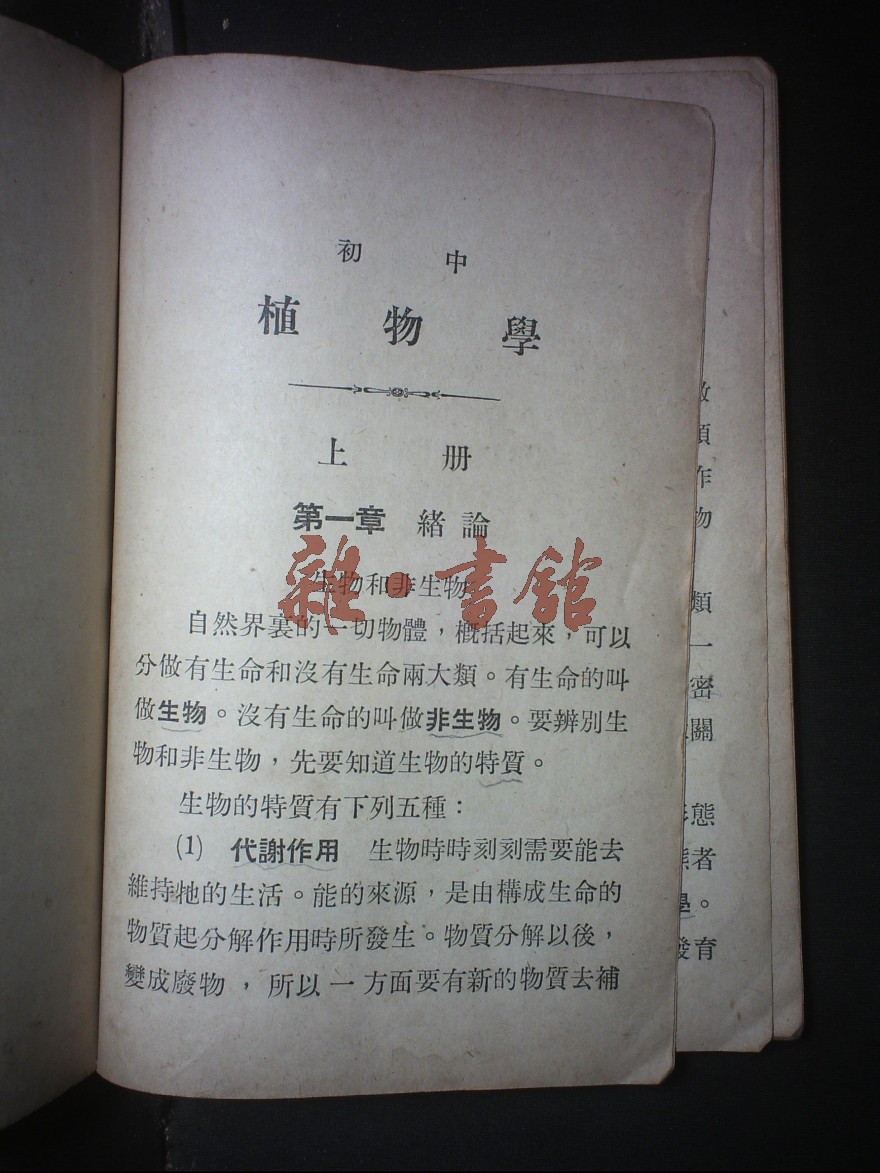 初中
植物學
上册
第一章 緒論
生物和非生物
雜·書館
自然界裏的一切物體，概括起來，可以
分做有生命和沒有生命兩大類。有生命的叫
做生物。沒有生命的叫做非生物。要辨別生
物和非生物，先要知道生物的特質。
生物的特質有下列五種：
(1) 代謝作用 生物時時刻刻需要能去
維持牠的生活。能的來源，是由構成生命的
物質起分解作用時所發生。物質分解以後，
變成廢物，所以一方面要有新的物質去補
物
類
一
密
關
態
者
學。
發育